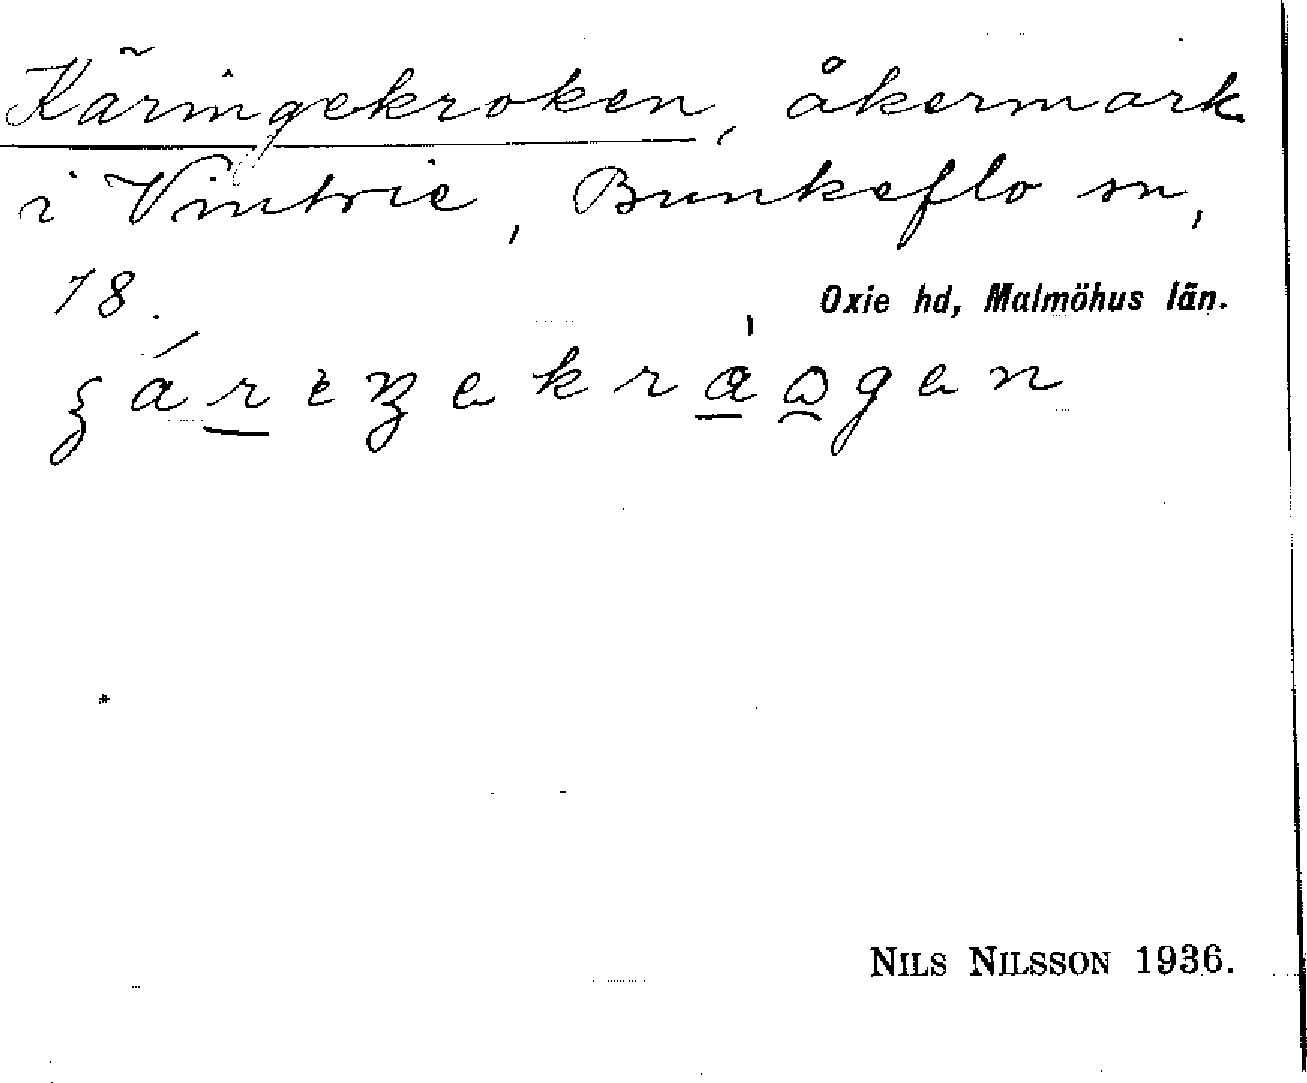 Käringekroken, åkermark
i Vintrie, Bunkeflo sn,
18.
Oxie hd, Malmöhus län.
NILS NILSSON 1936.